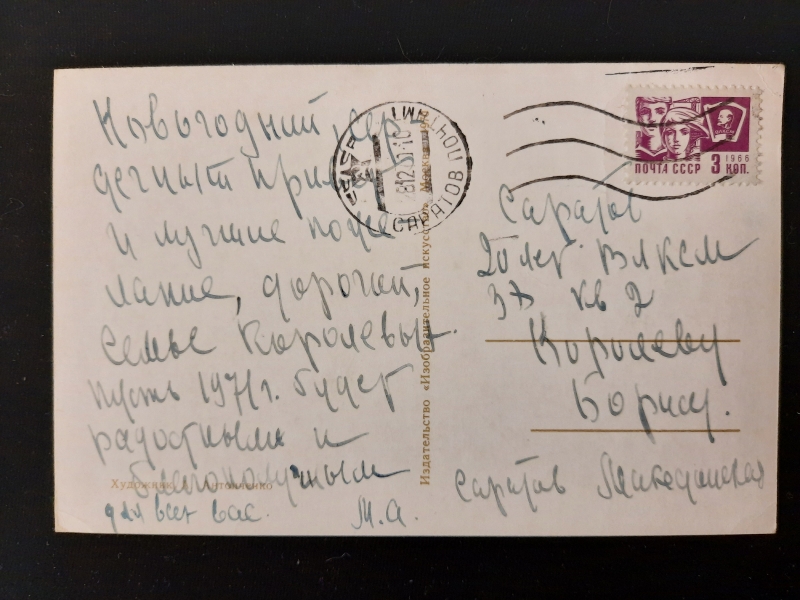 Новогодний, сер-
дечный привет
и лучшие поже
лание, дорогой,
семье Королевых.
пусть 1971 г. будет
радостным и
благополучным
для всех вас. М.А.
Художник
Издательство «Изобразительное искусство» Москва
ПОЧТАМТ
САРАТОВ
1966
ПОЧТА СССР 3 КОП.
ВЛКСМ
Саратов
20 лет ВЛКСМ
3А кв 2
Королеву
Борису.
Саратов Македонская